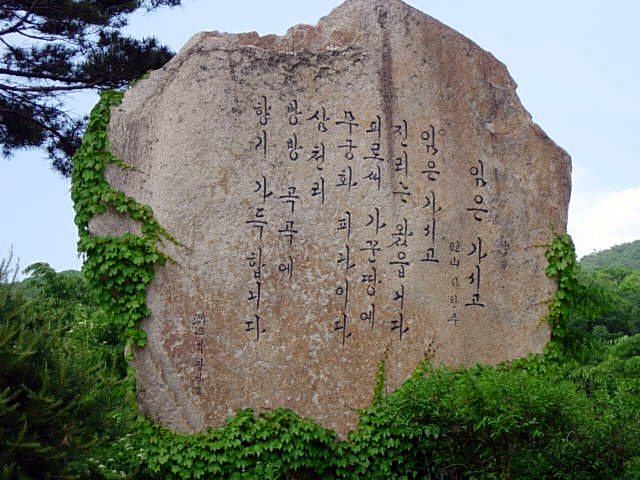 임은 가시고
임은 가시고
진리는 왔읍니다
피로써 가꾼땅에
무궁화 피라이다
삼천리
방방 곡곡에
향기 가득 합니다